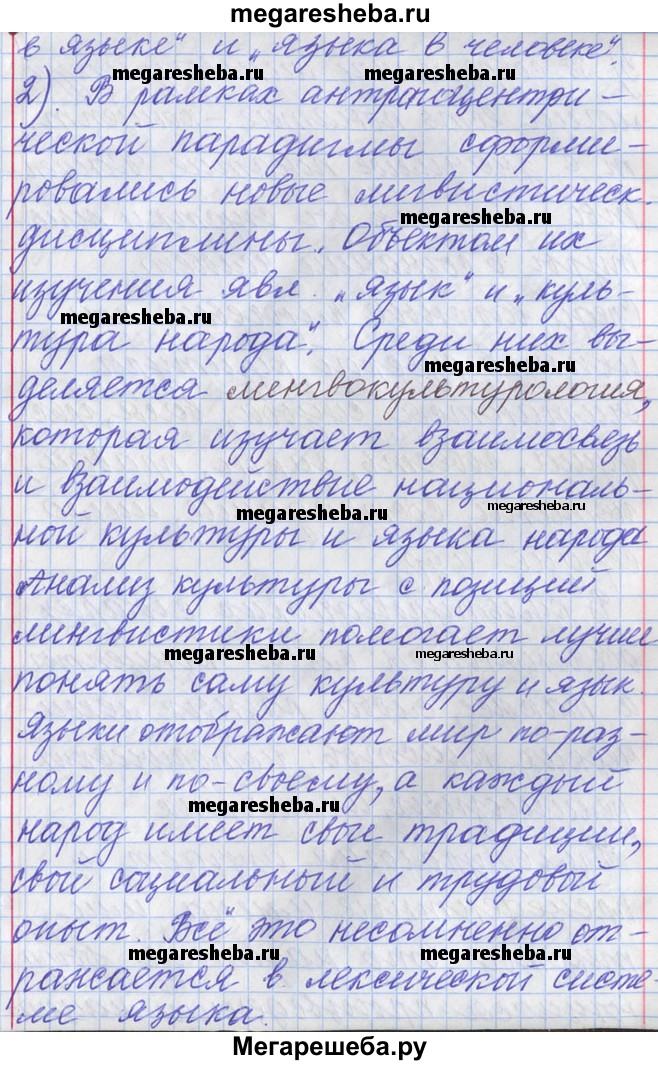 megaresheba.ru
в языке" и „языка в человеке".
megaresheba.ru megaresheba.ru
2). В рамках антропоцентри-
ческой парадигмы сформи-
ровались новые лигвистическ.
megaresheba.ru
дисциплины. Объектом их
изучения явл. „язык" и „куль-
megaresheba.ru
тура народа". Среди них вы-
megaresheba.ru
деляется лингвокультурология,
которая изучает взаимосвязь
и взаимодействие националь-
megaresheba.ru megaresheba.ru
ной культуры и языка народа
Анализ культуры с позиций
лингвистики помогает лучше
megaresheba.ru megaresheba.ru
понять саму культуру и язык.
Языки отображают мир по-раз-
ному и по-своему, а каждый
megaresheba.ru
народ имеет свои традиции,
свой социальный и трудовой
опыт. Всё это несомненно от-
megaresheba.ru megaresheba.ru
ражается в лексической систе-
ме языка.
Мегарешеба.ру